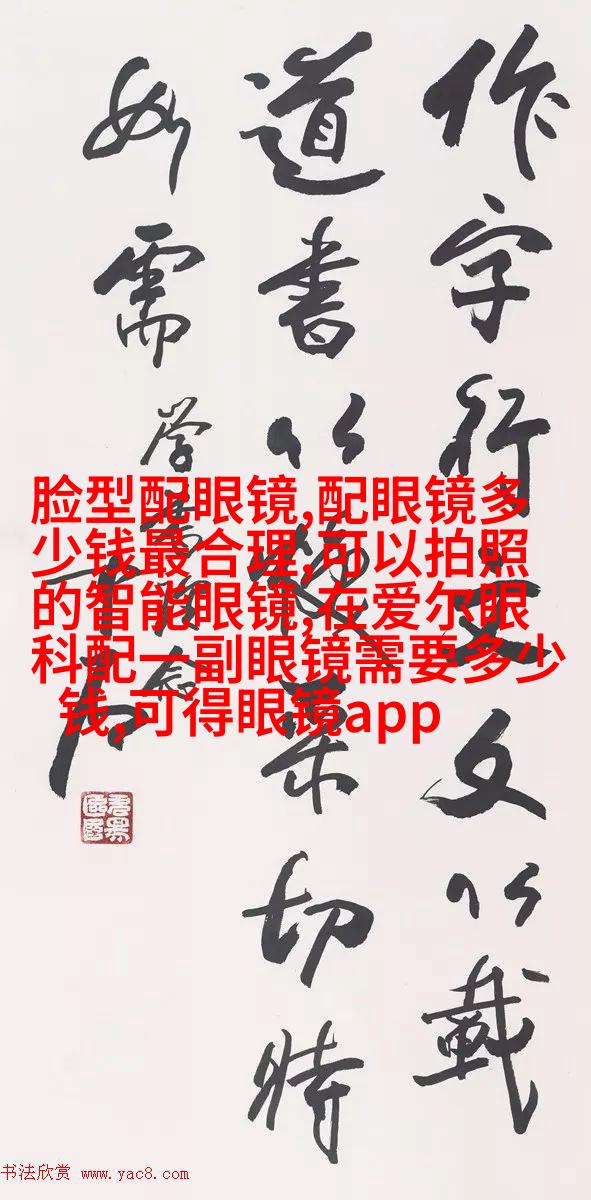 作字行文文以載
道書以煥采切時
如需
脸型配眼镜,配眼镜多
少钱最合理,可以拍照
的智能眼镜,在爱尔眼
科配一副眼镜需要多少
钱,可得眼镜app
书法欣赏 www.yac8.com